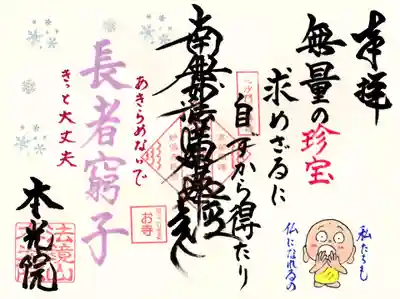 奉拝
無量の珍宝
求めざるに
自ずから得たり
南無妙法蓮華経
長者窮子
あきらめないで
きっと大丈夫
本光院
お寺
法境山
私たちも
仏になれるの